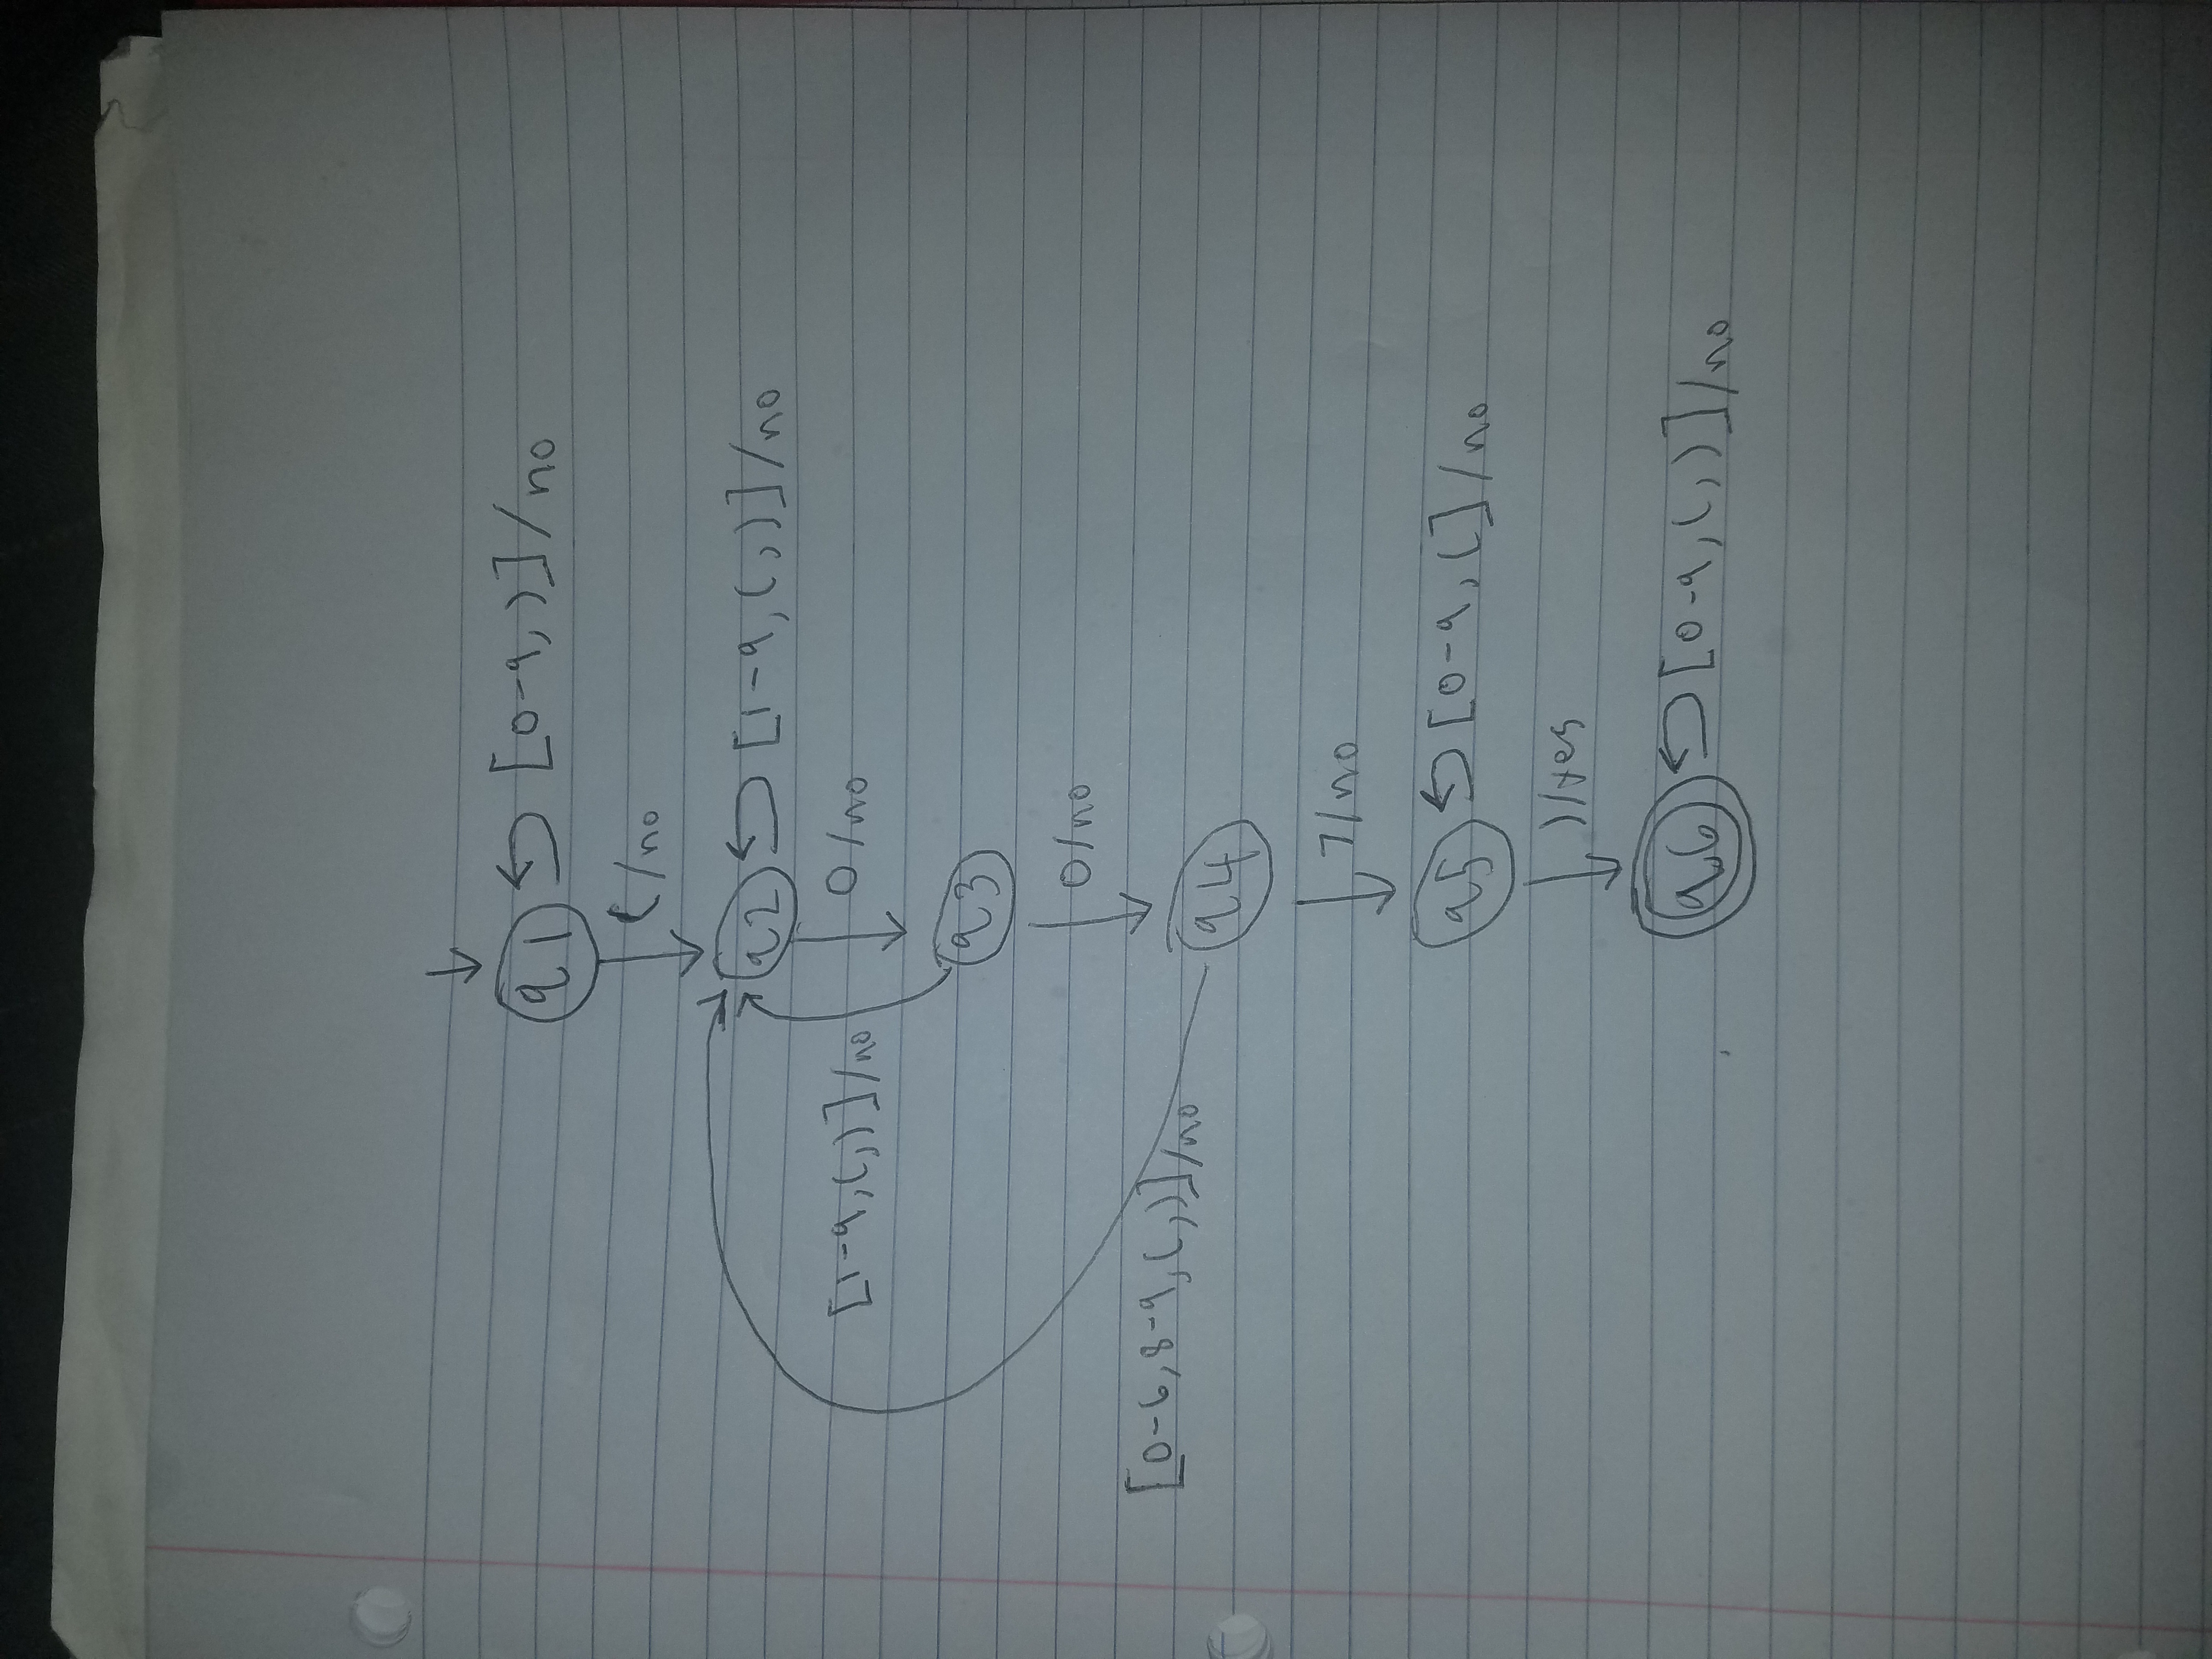 q1 [0-9,)]/no
(/no
q2 [1-9,(,)]/no
[1-9,(,)]/no 0/no
q3
0/no
[0-6,8-9,(,)]/no
q4
7/no
q5 [0-9,(]/no
)/yes
q6 [0-9,(,)]/no